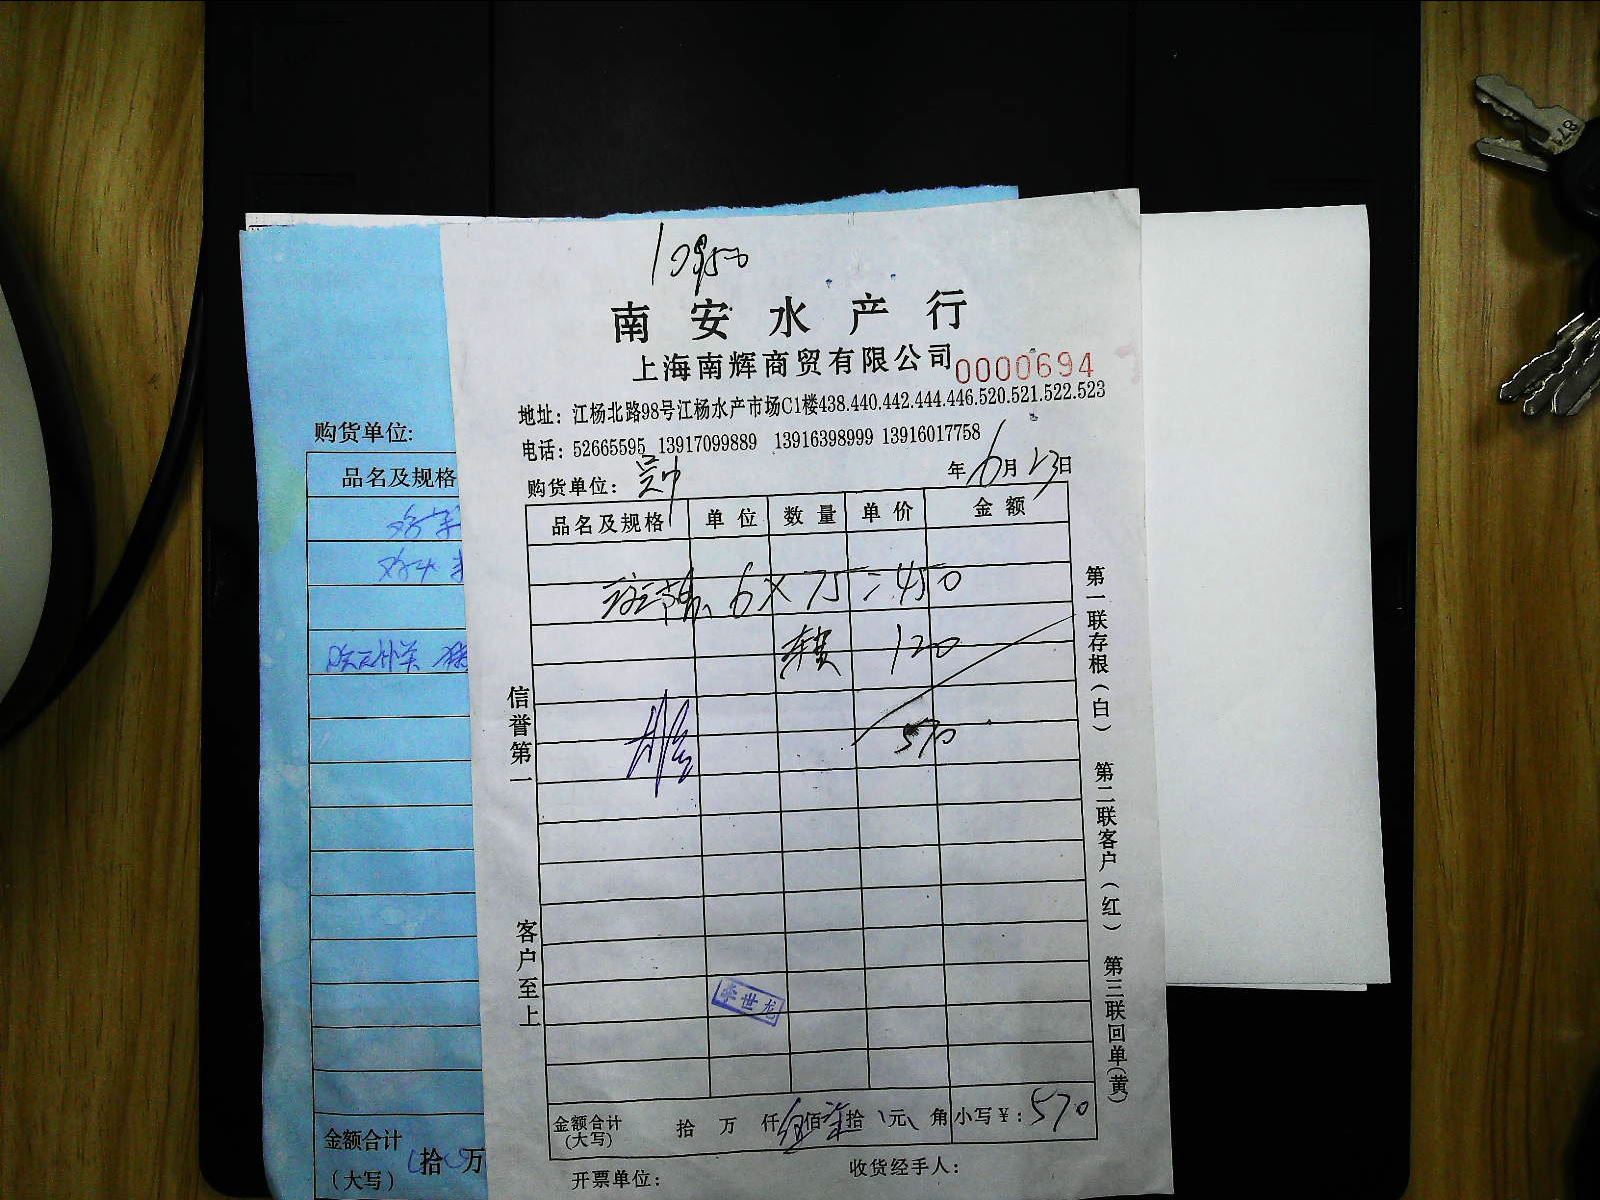 南安水产行
上海南辉商贸有限公司 0000694
地址：江杨北路98号江杨水产市场C1楼438.440.442.444.446.520.521.522.523
电话：52665595 13917099889 13916398999 13916017758
购货单位： 年6月23日
品名及规格 单位 数量 单价 金额
6×75=450
车费 120
570
信誉第一
客户至上
李世龙
第一联存根（白） 第二联客户（红） 第三联回单（黄）
金额合计（大写） 拾 万 仟 伍佰柒拾 元 角 小写￥：570
开票单位： 收货经手人：
购货单位:
品名及规格
金额合计（大写） 拾 万
87